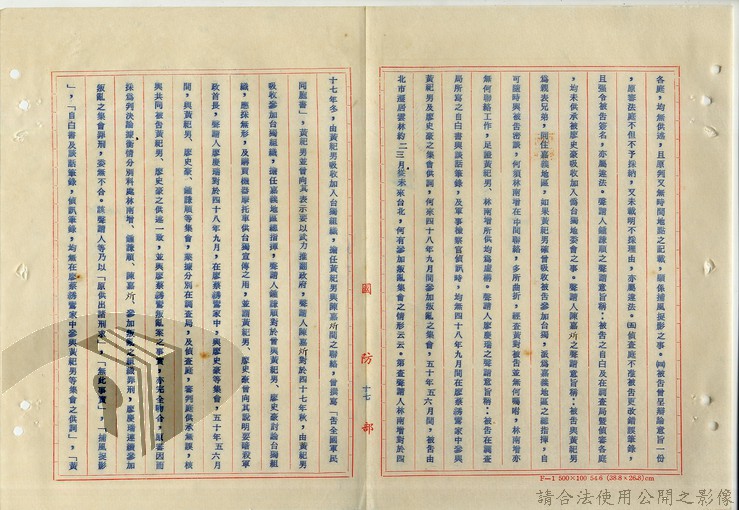 各庭，均無供述，且原判又無時間地點之記載，顯係捕風捉影之事。㈣被告曾呈辯論意旨一份
，原審法庭不但不予採納，又未載明不採理由，亦屬違法。㈤偵查庭不准被告更改錯誤筆錄，
且強令被告簽名，亦屬違法。聲請人鍾謙順之聲請意旨稱：被告之自白及在調查局暨偵審各庭
，均未供承被廖史豪吸收加入僞台獨地委會之事。聲請人陳嘉炘之聲請意旨稱：被告與黃紀男
為親表兄弟，同住嘉義地區，如果黃紀男確曾吸收被告參加台獨，派為嘉義地區之總指揮，自
可隨時與被告密談，何須林南增在中間聯絡，多所曲折，經查黃對被告並無何囑咐，林南增亦
無何聯絡工作，足證黃紀男、林南增所供均為虛構。聲請人廖慶瑞之聲請意旨稱：被告在調查
局所寫之自白書與談話筆錄，及軍事檢察官偵訊時，均無四十八年九月間在廖蔡綉鸞家中參與
黃紀男及廖史豪之集會供詞，何來四十八年九月間參加叛亂之集會，五十年五六月間，被告由
北市遷居雲林約二三月從未來台北，何有參加叛亂集會之情形云云。第查聲請人林南增對於四
國防部
十七
十七年冬，由黃紀男吸收加入台獨組織，擔任黃紀男與陳嘉炘間之聯絡，曾撰寫「告全國軍民
同胞書」，黃紀男並曾向其表示要以武力推翻政府，聲請人陳嘉炘對於四十七年秋，由黃紀男
吸收參加台獨組織，擔任嘉義地區總指揮，聲請人鍾謙順對於曾與黃紀男、廖史豪討論台獨組
織，應採無形，及購買機器摩托車供台獨宣傳之用，並謂黃紀男、廖史豪曾向其說明要暗殺軍
政首長，聲請人廖慶瑞對於四十八年九月，在廖蔡綉鸞家中，與廖史豪等集會，五十年五六月
間，與黃紀男、廖史豪、鍾謙順等集會，業據分別在調查局，及偵查庭，審判庭供承無誤，核
與共同被告黃紀男、廖史豪之供述一致，並與廖蔡綉鸞叛亂案之事實，亦完全吻合，原審因而
採為判決論據，衡情分別料處林南增、鍾謙順、陳嘉炘，參加叛亂之組織罪刑，廖慶瑞連續參加
叛亂之集會罪刑，委無不合。該聲請人等乃以「原供出諸刑求」，「無此事實」，「捕風捉影
」，「自白書及談話筆錄，偵訊筆錄，均無在廖蔡綉鸞家中參與黃紀男等集會之供詞」，「黃
F－1 500×100 54.6 (38.8×26.8)cm
請合法使用公開之影像